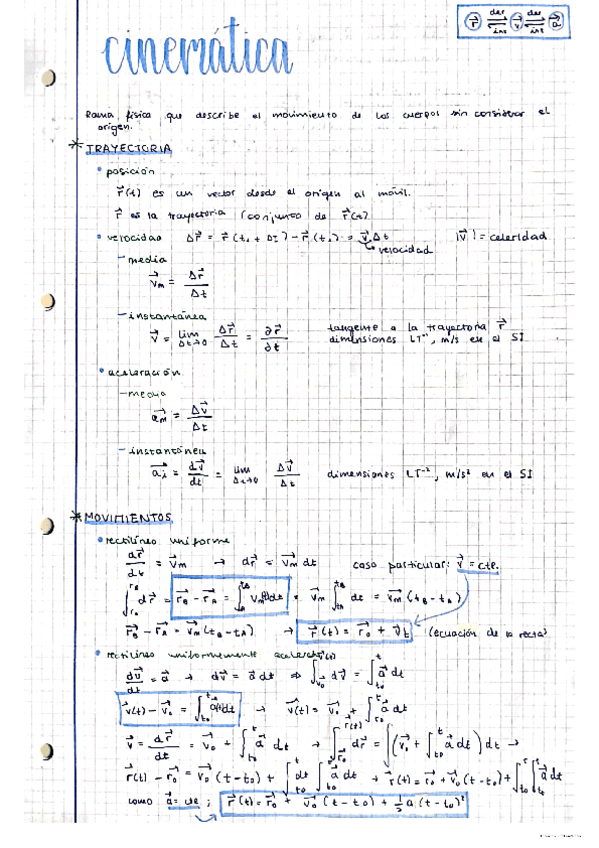 r⃗ ⇌ v⃗ ⇌ a⃗
der der
int int
cinemática
Rama física que describe el movimiento de los cuerpos sin considerar el
origen.
* TRAYECTORIA
• posición
r⃗(t) es un vector desde el origen al móvil.
r⃗ es la trayectoria (conjunto de r⃗(t)
• velocidad Δr⃗ = r⃗(t₁ + Δt) − r⃗(t₁) = v⃗ₘΔt |v⃗| = celeridad
↳ velocidad
− media
v⃗ₘ = Δr⃗/Δt
− instantánea
v⃗ = lim Δt→0 Δr⃗/Δt = ∂r⃗/∂t tangente a la trayectoria r⃗
dimensiones LT⁻¹, m/s en el SI
• aceleración
− media
a⃗ₘ = Δv⃗/Δt
− instantánea
a⃗ᵢ = dv⃗/dt = lim Δt→0 Δv⃗/Δt dimensiones LT⁻², m/s² en el SI
* MOVIMIENTOS
• rectilíneo uniforme
dr⃗/dt = v⃗ₘ → dr⃗ = v⃗ₘ dt caso particular: v⃗ = cte.
∫ dr⃗ = r⃗_B − r⃗_A = ∫ vₘ(t)dt = vₘ ∫ dt = v⃗ₘ (t_B − t_A)
r⃗_B − r⃗_A = v⃗ₘ(t_B − t_A) → r⃗(t) = r⃗₀ + v⃗t (ecuación de la recta)
• rectilíneo uniformemente acelerado
dv⃗/dt = a⃗ → dv⃗ = a⃗ dt ⇒ ∫ dv⃗ = ∫ a⃗ dt
v⃗(t) − v⃗₀ = ∫ a⃗(t)dt → v⃗(t) = v⃗₀ + ∫ a⃗ dt
v⃗ = dr⃗/dt = v⃗₀ + ∫ a⃗ dt → ∫ dr⃗ = ∫ (v⃗₀ + ∫ a⃗ dt) dt →
r⃗(t) − r⃗₀ = v⃗₀(t − t₀) + ∫ dt ∫ a⃗ dt → r⃗(t) = r⃗₀ + v⃗₀(t − t₀) + ∫∫ a⃗ dt
como a⃗ = cte ; r⃗(t) = r⃗₀ + v⃗₀(t − t₀) + ½ a (t − t₀)²